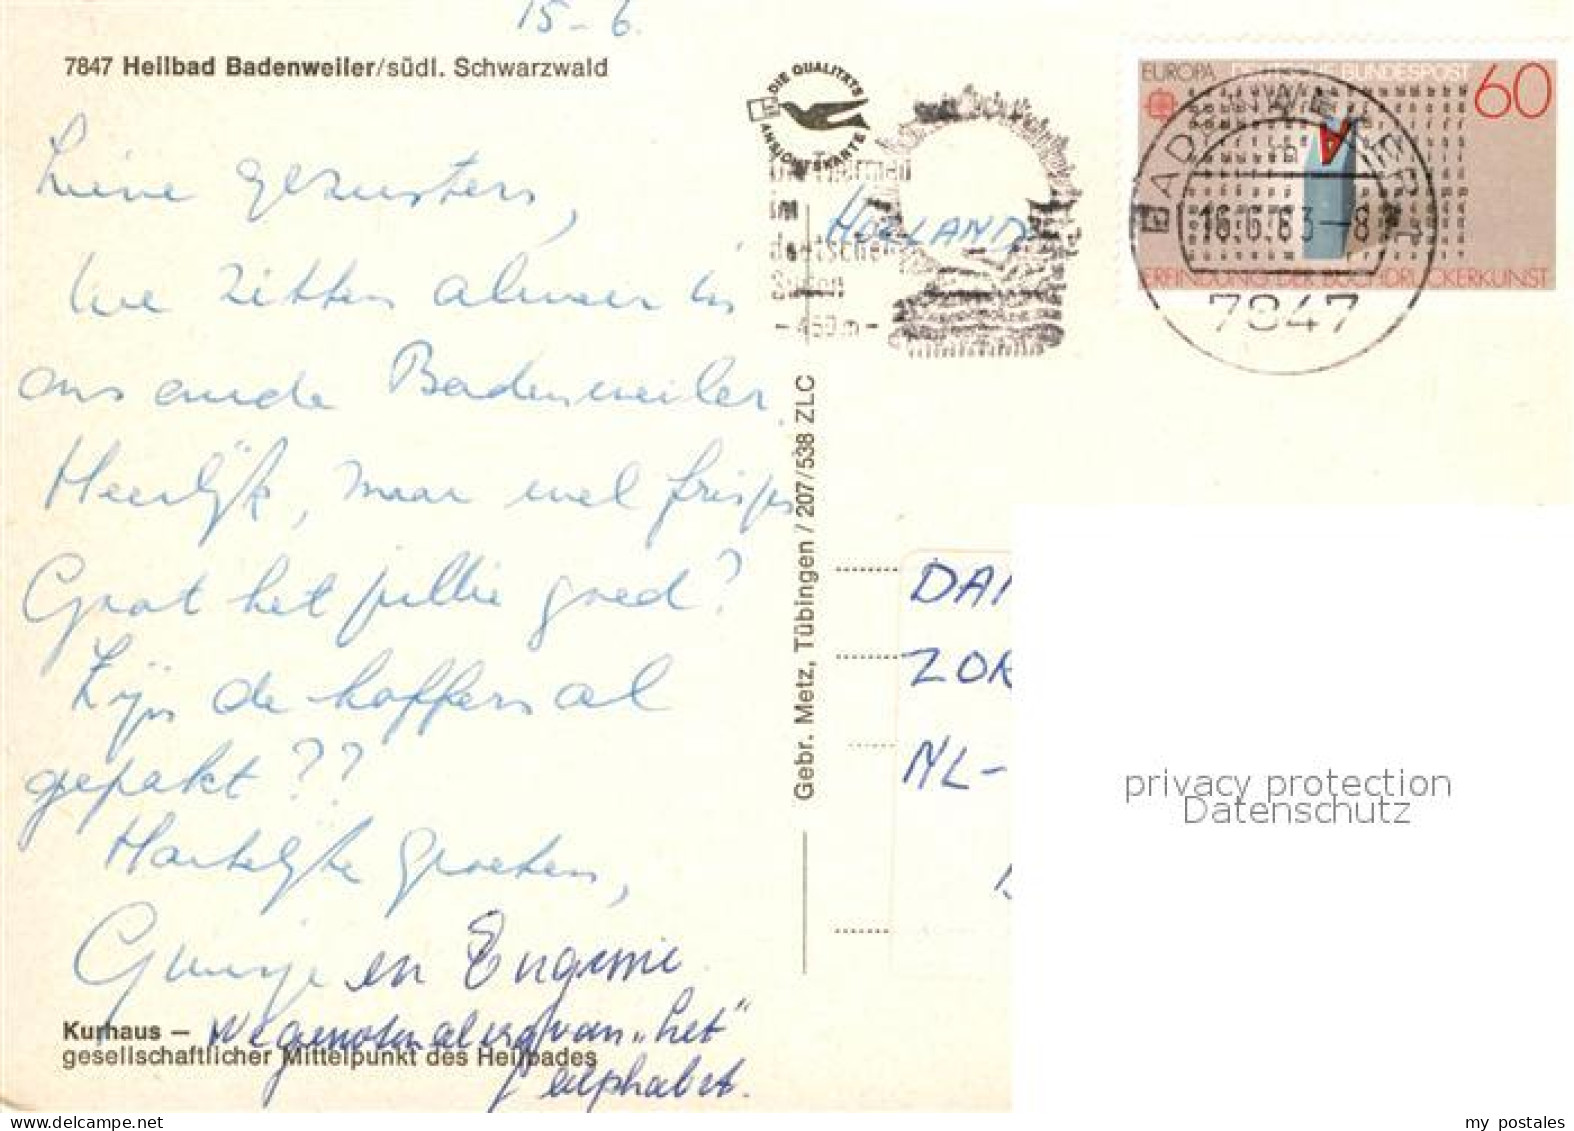 15-6.
7847 Heilbad Badenweiler/südl. Schwarzwald
Lieve gezusters,
We zitten alweer in
ons oude Badenweiler.
Heerlijk, maar wel frisjes
Gaat het jullie goed?
Zijn de koffers al
gepakt??
Hartelijke groeten,
en Eugenie.
We genoten al erg van „het"
alphabet.
Kurhaus —
gesellschaftlicher Mittelpunkt des Heilbades
Gebr. Metz, Tübingen / 207/538 ZLC
DIE QUALITÄTS
ANSICHTSKARTE
Thermen
im
deutschen
Süden
- 450 m -
HOLLAND
EUROPA DEUTSCHE BUNDESPOST 60
ERFINDUNG DER BUCHDRUCKERKUNST
BADENWEILER
16.6.83-8
7847
DA
ZOR
NL-
privacy protection
Datenschutz
my postales